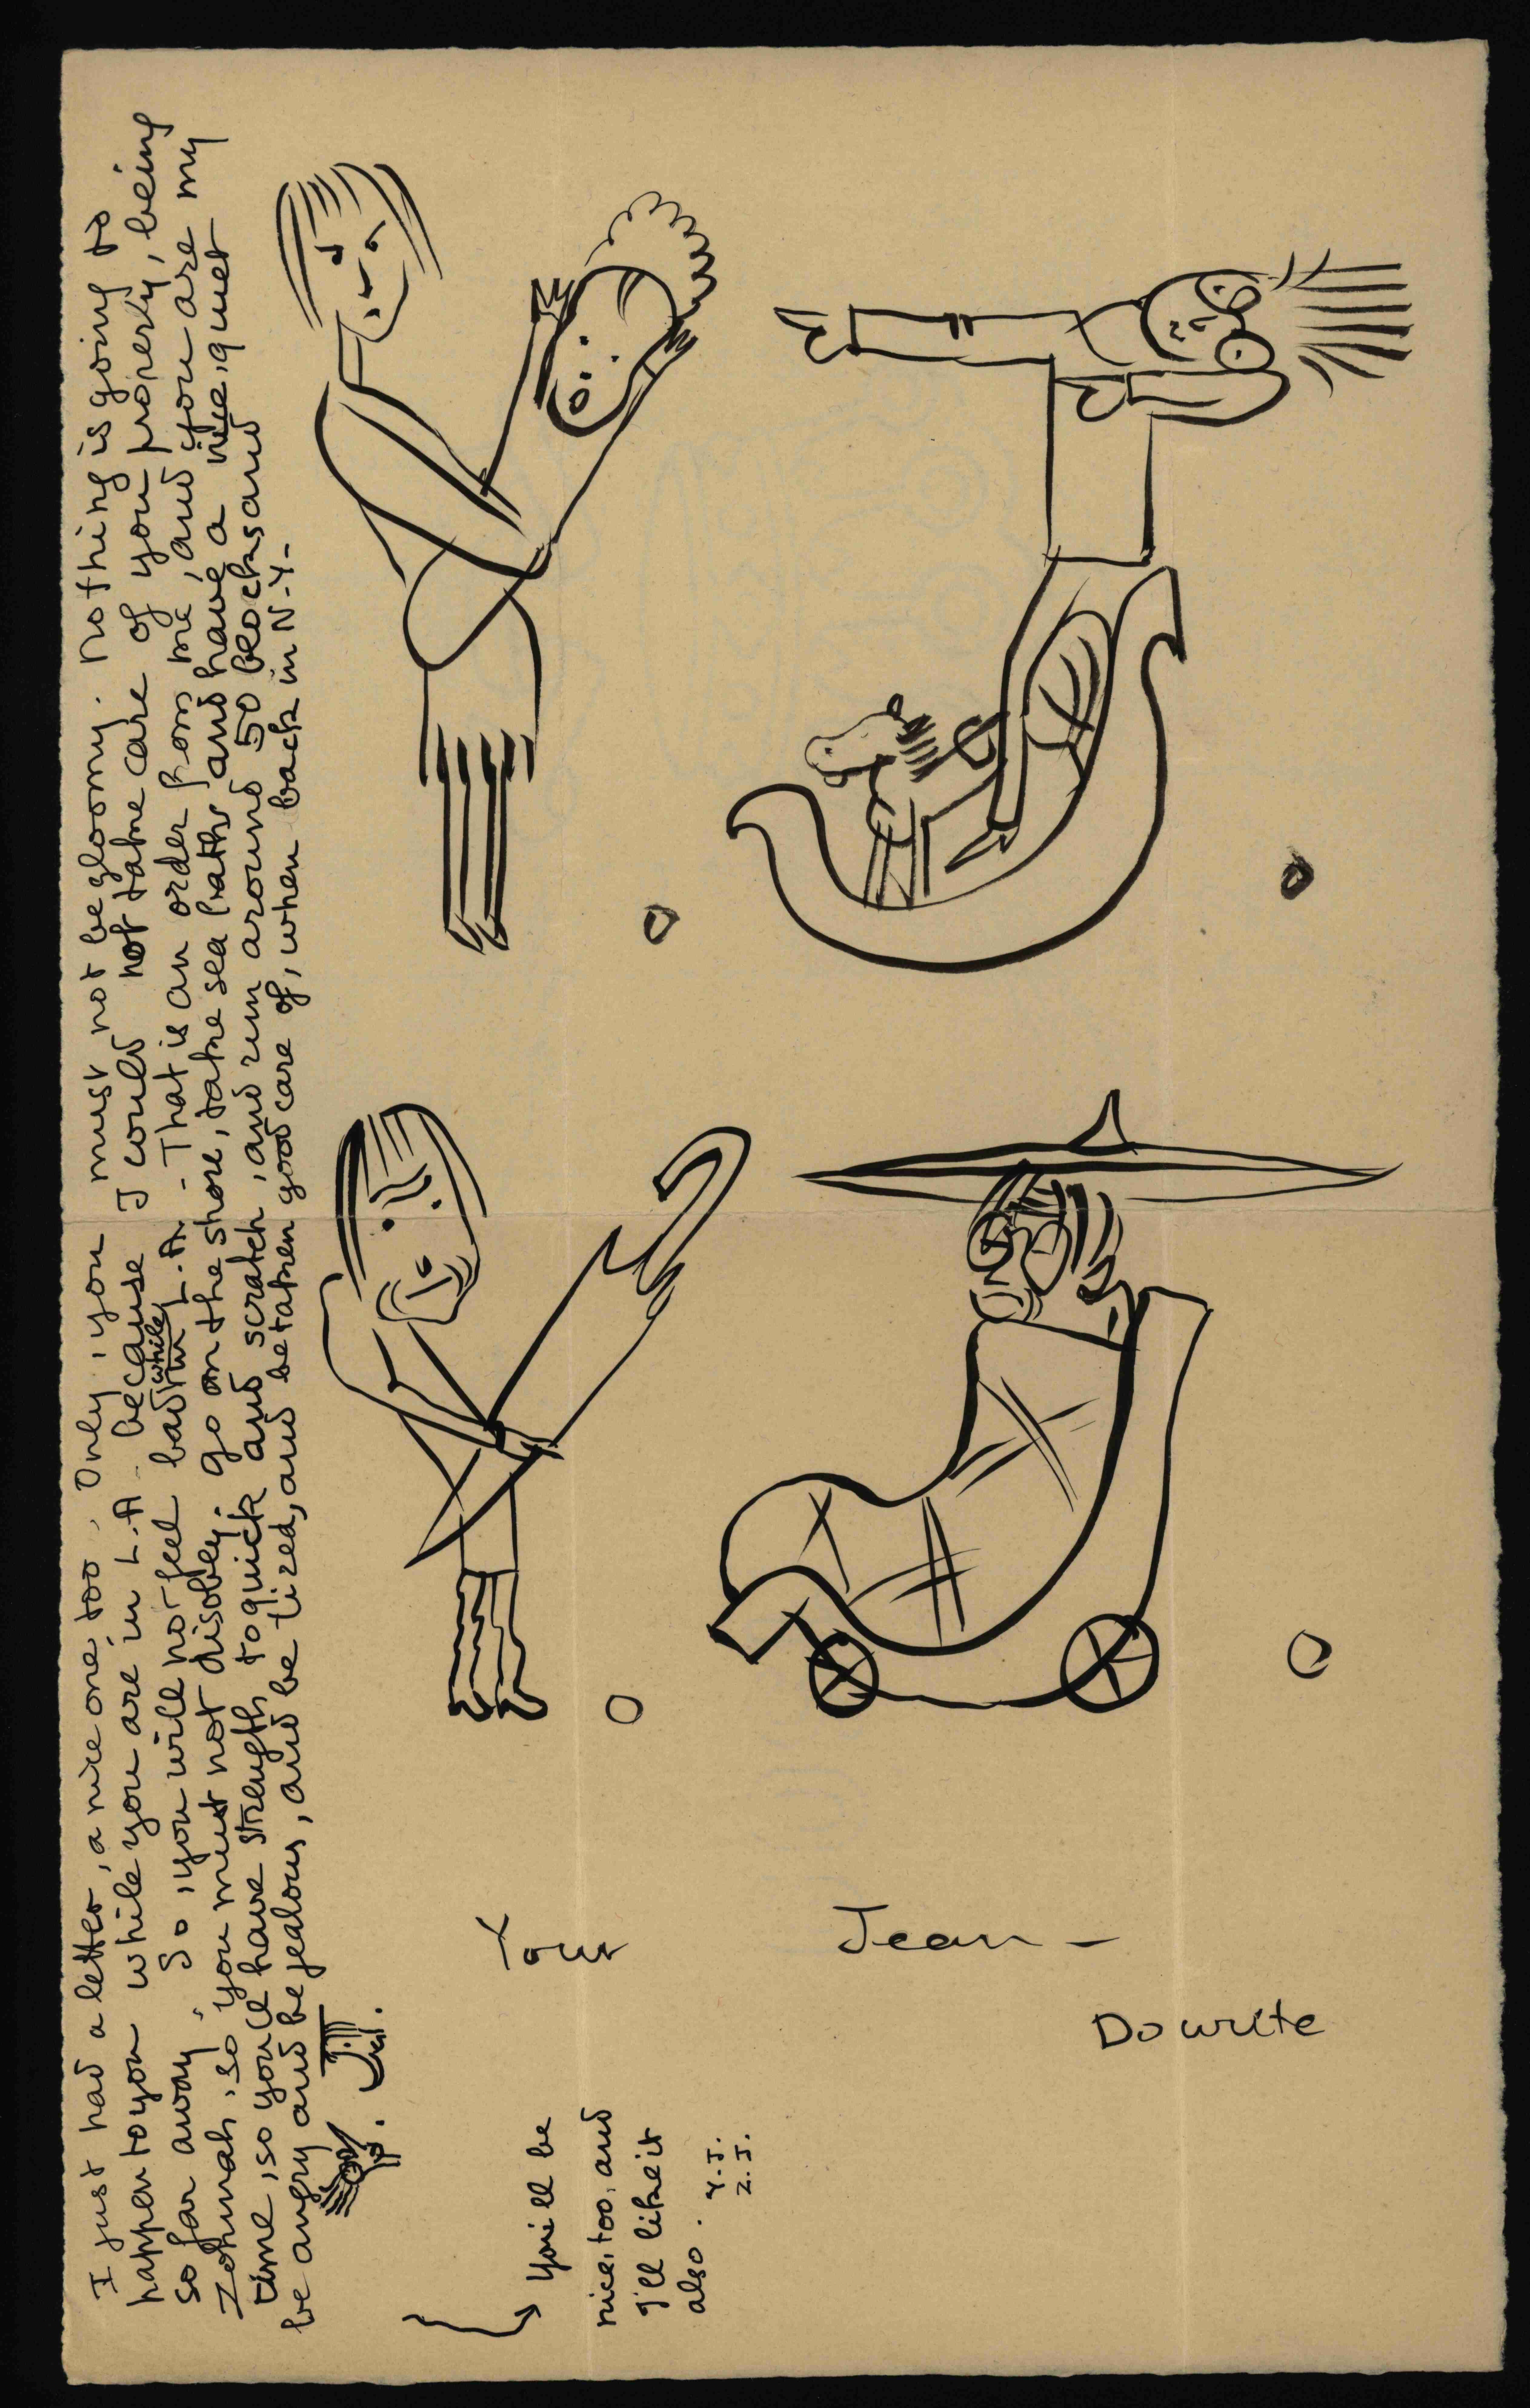 I just had a letter, a nice one, too. Only, you must not be gloomy. Nothing is going to
happen to you while you are in L.A. because I could not take care of you properly, being
so far away. So, you will not feel bad while in L.A. - That is an order from me, and you are my
Zohmah, so you must not disobey. go on the shore, take sea baths and have a nice, quiet
time, so you'll have strength to quick and scratch, and run around 50 blocks and
be angry and be jealous, and be tized, and be taken good care of, when back in N-Y-
you'll be
nice, too, and
I'll like it
also.
Y.J.
Z.J.
Your Jean -
Do write